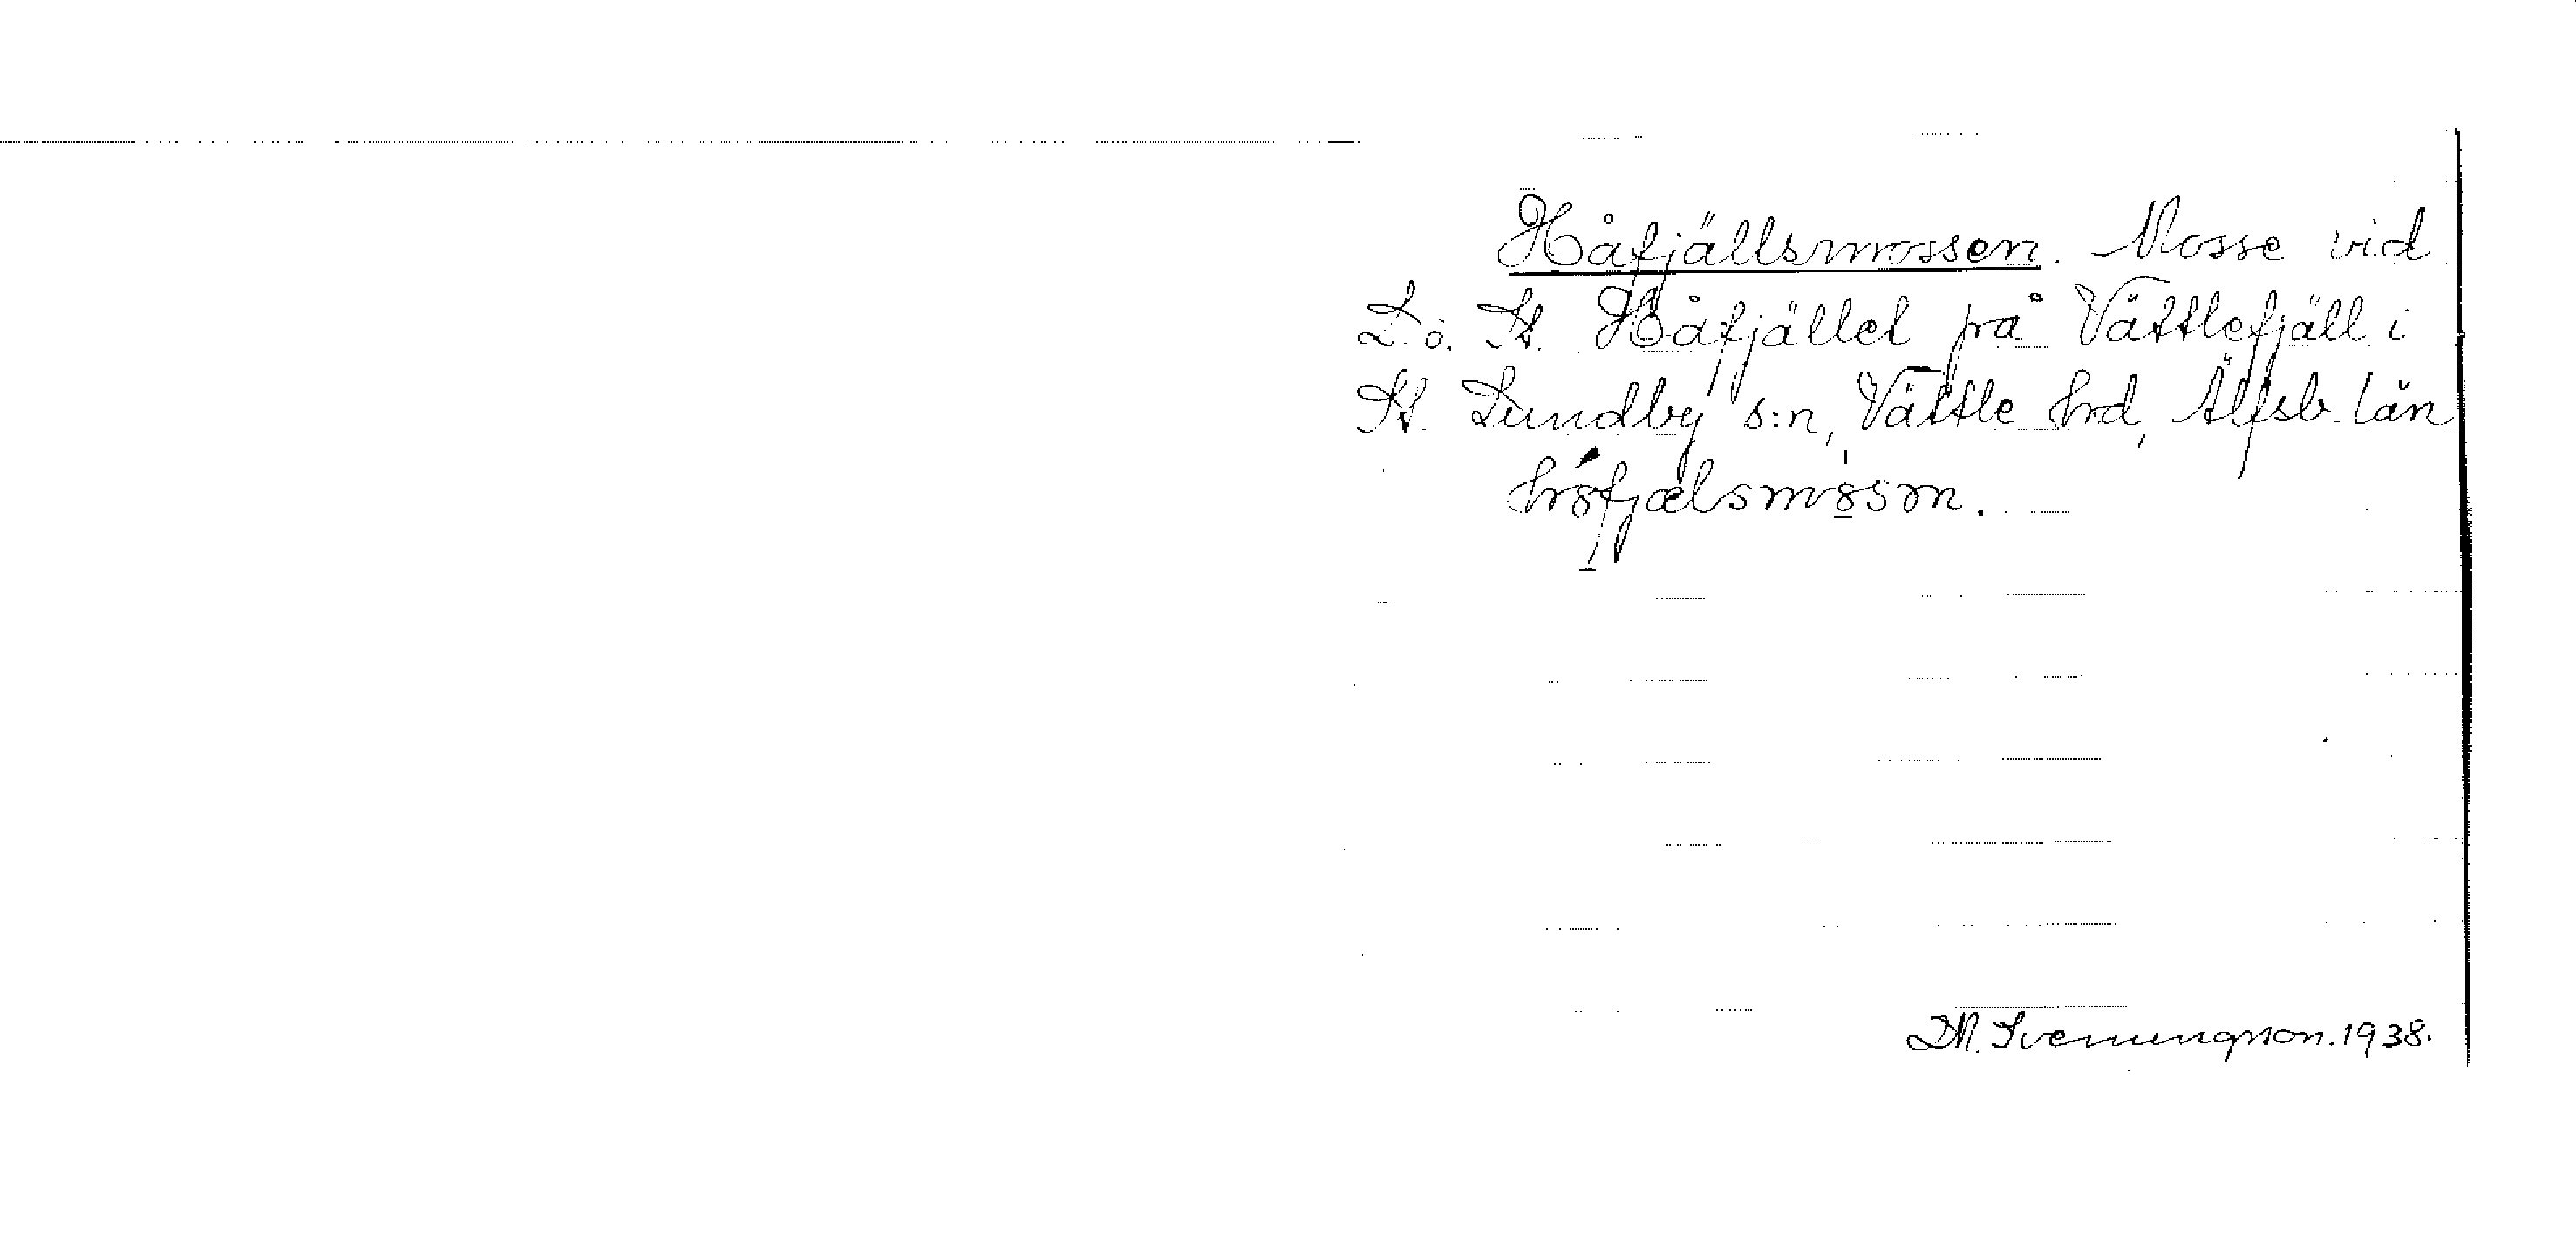 Håfjällsmossen. Mosse vid
L. o. St. Håfjället på Vättlefjäll i
St. Lundby s:n, Vättle hrd, Älfsb. län
D.M. Svenungsson. 1938.